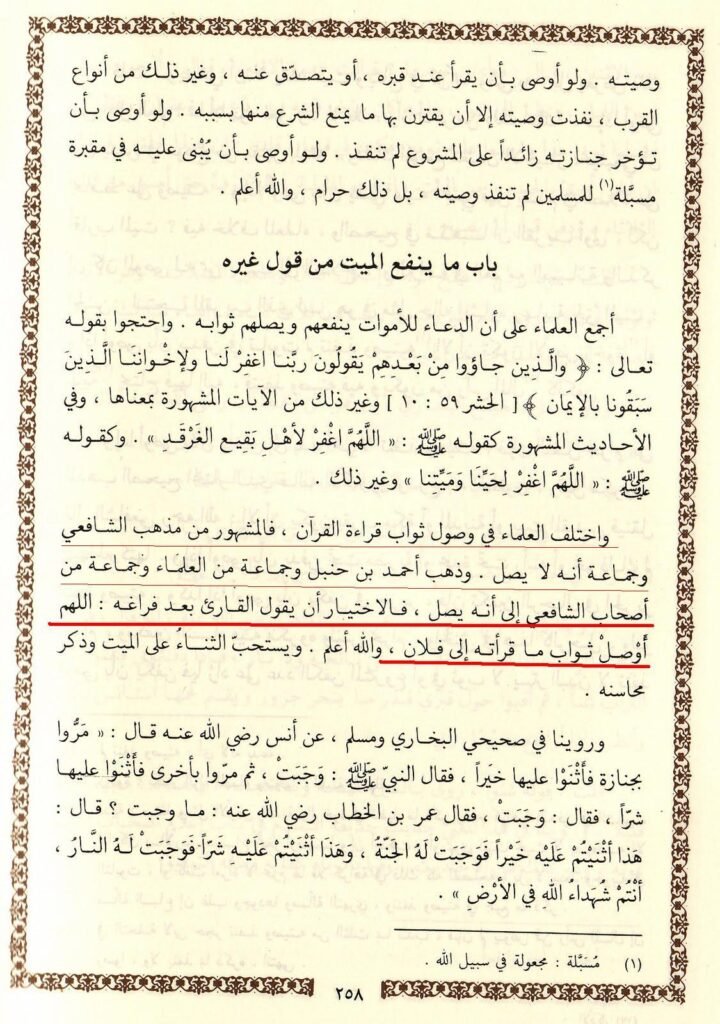 وصيته . ولو أوصى بأن يقرأ عند قبره ، أو يتصدّق عنه ، وغير ذلك من أنواع
القرب ، نفذت وصيته إلا أن يقترن بها ما يمنع الشرع منها بسببه . ولو أوصى بأن
تؤخر جنازته زائداً على المشروع لم تنفذ . ولو أوصى بأن يُبْنى عليه في مقبرة
مسبَّلة(١) للمسلمين لم تنفذ وصيته ، بل ذلك حرام ، والله أعلم .
باب ما ينفع الميت من قول غيره
أجمع العلماء على أن الدعاء للأموات ينفعهم ويصلهم ثوابه . واحتجوا بقوله
تعالى : ﴿ والَّذِينَ جاؤوا مِنْ بَعْدِهِمْ يَقُولُونَ ربَّنا اغفرْ لَنا ولإخْوانِنا الَّذِينَ
سَبَقُونا بالإيمَانِ ﴾ [ الحشر ٥٩ : ١٠ ] وغير ذلك من الآيات المشهورة بمعناها ، وفي
الأحاديث المشهورة كقوله ﷺ : « اللَّهُمَّ اغْفِرْ لأهْلِ بَقِيعِ الغَرْقَدِ » . وكقوله
ﷺ : « اللَّهُمَّ اغْفِرْ لحَيِّنَا وَمَيِّتِنا » وغير ذلك .
واختلف العلماء في وصول ثواب قراءة القرآن ، فالمشهور من مذهب الشافعي
وجماعة أنه لا يصل . وذهب أحمد بن حنبل وجماعة من العلماء وجماعة من
أصحاب الشافعي إلى أنه يصل ، فالاختيار أن يقول القارئ بعد فراغه : اللهم
أَوْصِلْ ثواب ما قرأته إلى فلان ، والله أعلم . ويستحبّ الثناءُ على الميت وذكر
محاسنه .
وروينا في صحيحي البخاري ومسلم ، عن أنس رضي الله عنه قال : « مَرُّوا
بجنازة فأثْنَوْا عليها خَيراً ، فقال النبيّ ﷺ : وَجَبَتْ ، ثم مرّوا بأخرى فأَثْنَوْا عليها
شرّاً ، فقال : وَجَبَتْ ، فقال عمر بن الخطاب رضي الله عنه : ما وجبت ؟ قال :
هَذا أثْنَيْتُمْ عَلَيْه خَيْراً فَوَجَبَتْ لَهُ الجَنَّةُ ، وَهَذَا أثْنَيْتُمْ عَلَيْهِ شَرّاً فَوَجَبَتْ لَهُ النَّارُ ،
أنْتُمْ شُهَداءُ اللهِ في الأرْضِ » .
(١) مُسَبَّلة : مجعولة في سبيل الله .
٢٥٨